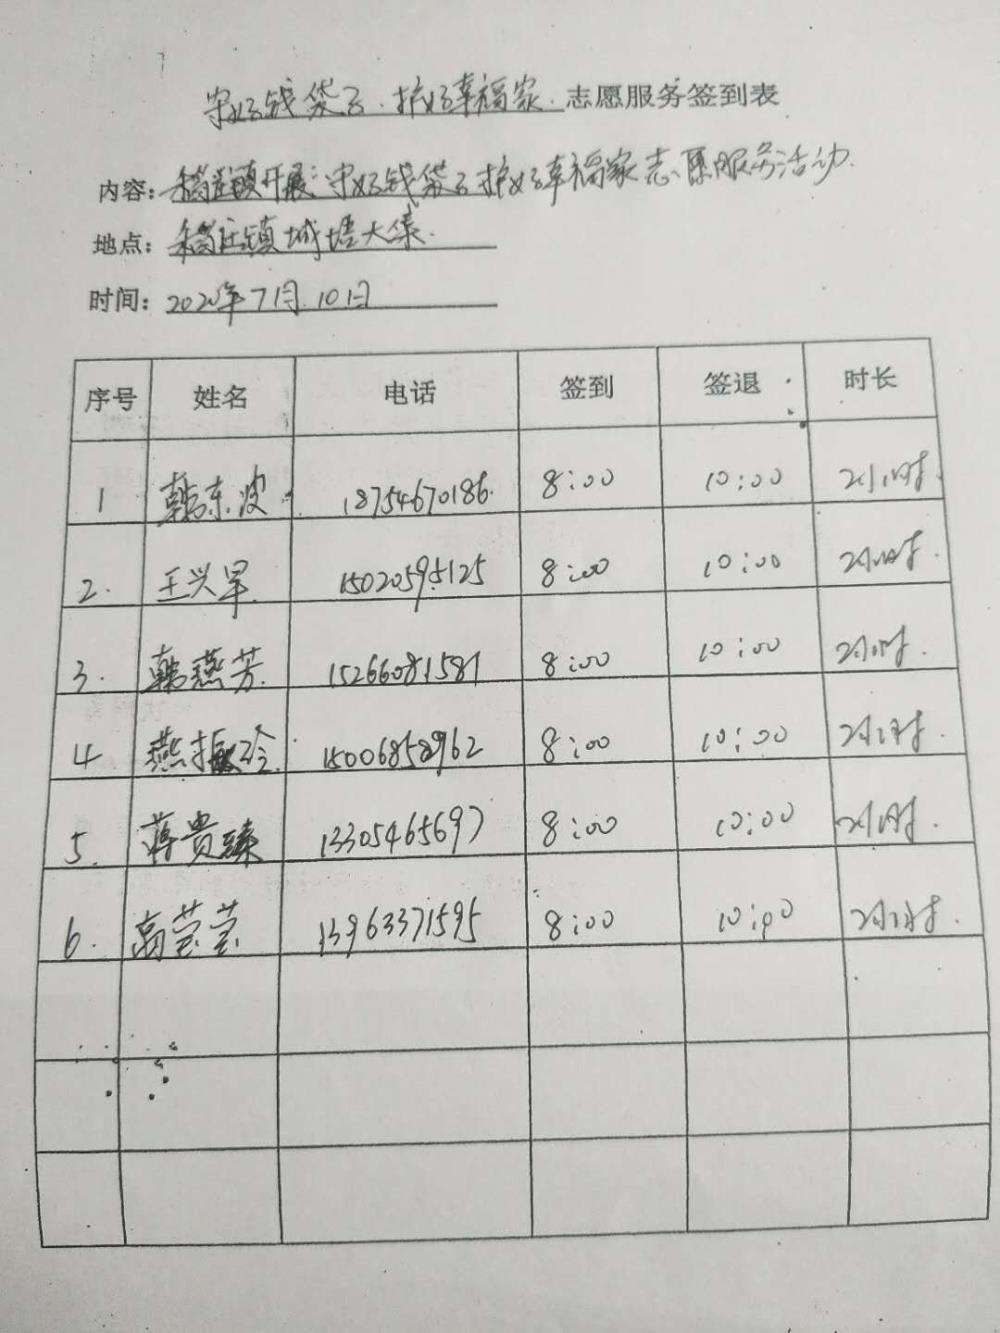 守好钱袋子.护好幸福家.志愿服务签到表
内容:稻庄镇开展守好钱袋子护好幸福家志愿服务活动.
地点:稻庄镇城塔大集.
时间:2020年7月10日
序号 姓名 电话 签到 签退 时长
1 韩东波 18754670186. 8:00 10:00 2小时.
2. 王兴军 15020595125 8:00 10:00 2小时.
3. 韩燕芳. 15266081581 8:00 10:00 2小时.
4 燕振玲. 15006858962 8:00 10:00 2小时.
5. 蒋贵臻 13305465697 8:00 10:00 2小时.
6. 高莹莹 13963371595 8:00 10:00 2小时.